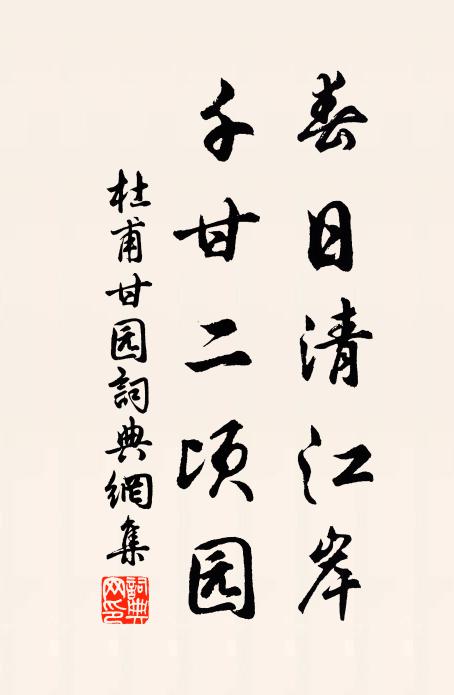 春日清江岸
千甘二顷园
杜甫甘园詞典網集
詞典网印